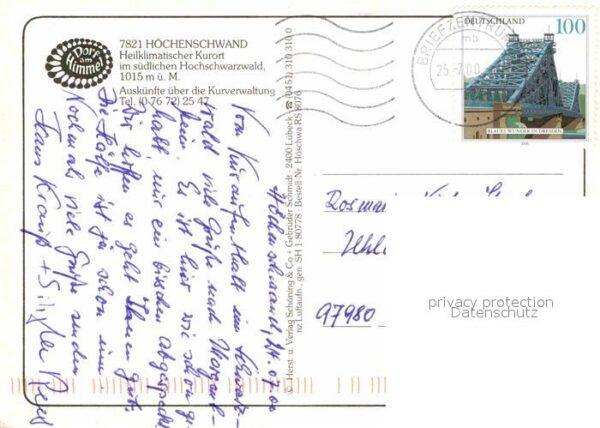 Dorf
am
Himmel
7821 HÖCHENSCHWAND
Heilklimatischer Kurort
im südlichen Hochschwarzwald,
1015 m ü. M.
Auskünfte über die Kurverwaltung
Tel. (0 76 72) 25 47
Höchenschwand, 24.07.00
Vom Kuraufenthalt im Schwarz-
wald viele Grüße nach
Es ist hier sehr schön
habt, nur ein bißchen abgespeckt
Wir hoffen es geht Ihnen gut.
Die Hälfte ist ja schon um.
Nochmals viele Grüße senden
Hans
© Herst. u. Verlag Schöning & Co + Gebrüder Schmidt · 2400 Lübeck ☎ (04 51) 310 310 0
nz Luftaufn., gen. SH 1-80778 · Bestell-Nr. Höschwa RS 8076
BRIEFZENTRUM
mb
DEUTSCHLAND
100
BLAUES WUNDER IN DRESDEN
2000
97980
privacy protection
Datenschutz